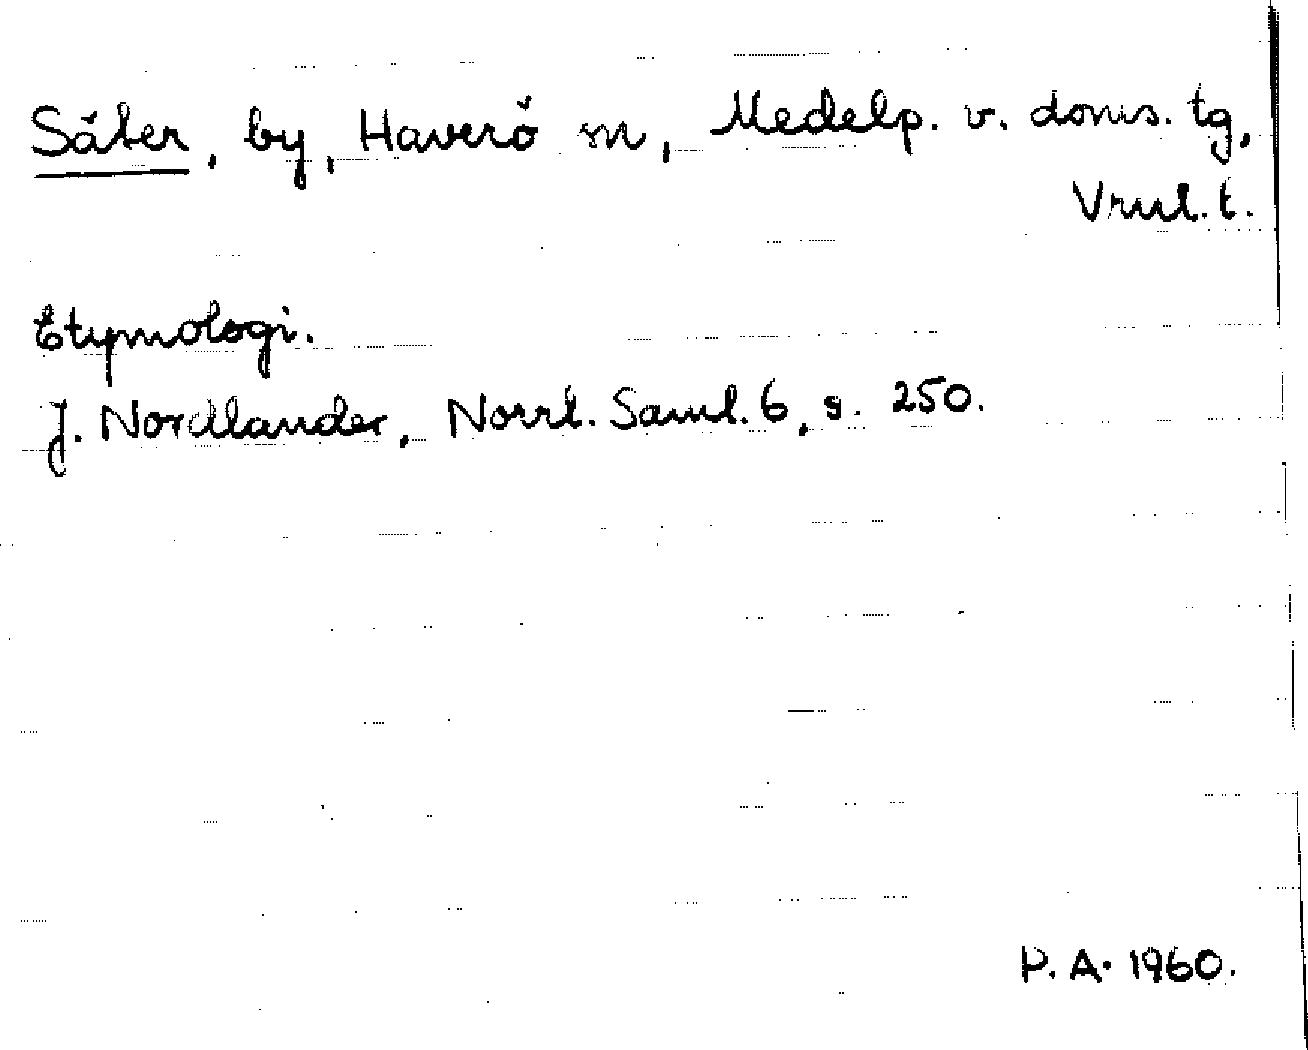 Säter, by, Haverö sn, Medelp. v. doms. tg,
Vrml. t.
Etymologi.
J. Nordlander, Norrl. Saml. 6, s. 250.
P. A. 1960.